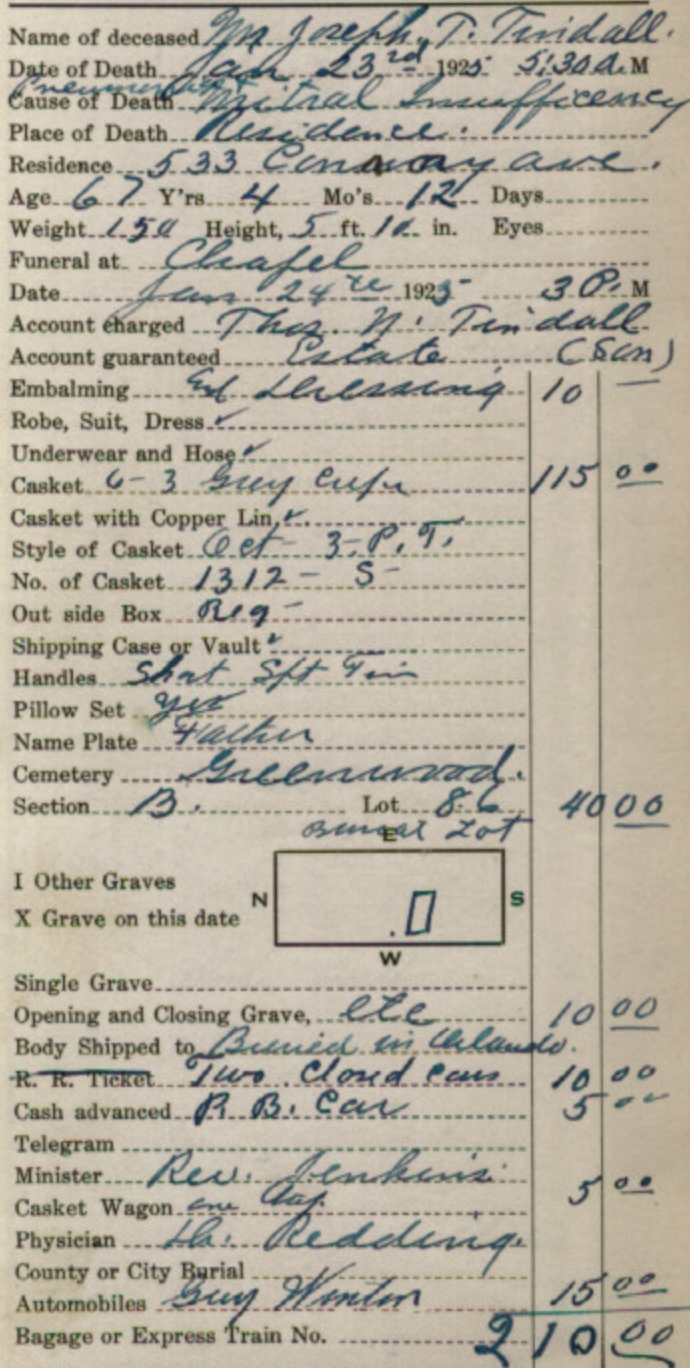 Name of deceased Mr Joseph T. Tindall.
Date of Death Jan 23rd 1925 5:30 A. M
Cause of Death Mitral Insufficency
Place of Death Residence.
Residence 533 Conway ave.
Age 67 Y'rs 4 Mo's 12 Days
Weight 150 Height, 5 ft. 10 in. Eyes
Funeral at Chapel
Date Jan 24th 1925 3 P. M
Account charged Thos. N. Tindall
Account guaranteed Estate (Son)
Embalming and Dressing 10 —
Robe, Suit, Dress ✓
Underwear and Hose ✓
Casket 6-3 Grey Crepe 115 00
Casket with Copper Lin. ✓
Style of Casket Oct - 3-P. T.
No. of Casket 1312 - S -
Out side Box Reg -
Shipping Case or Vault ✓
Handles Short
Pillow Set yes
Name Plate Father
Cemetery Greenwood.
Section B. Lot 86 40 00
Lot
E
I Other Graves
N S
X Grave on this date
W
Single Grave
Opening and Closing Grave, etc 10 00
Body Shipped to Buried in Orlando.
R. R. Ticket Two Closed cars 10 00
Cash advanced P. B. Car 5 00
Telegram
Minister Rev. Jenkins 5 00
Casket Wagon one
Physician Dr. Redding.
County or City Burial
Automobiles Grey Winton 15 00
Bagage or Express Train No. 210 00